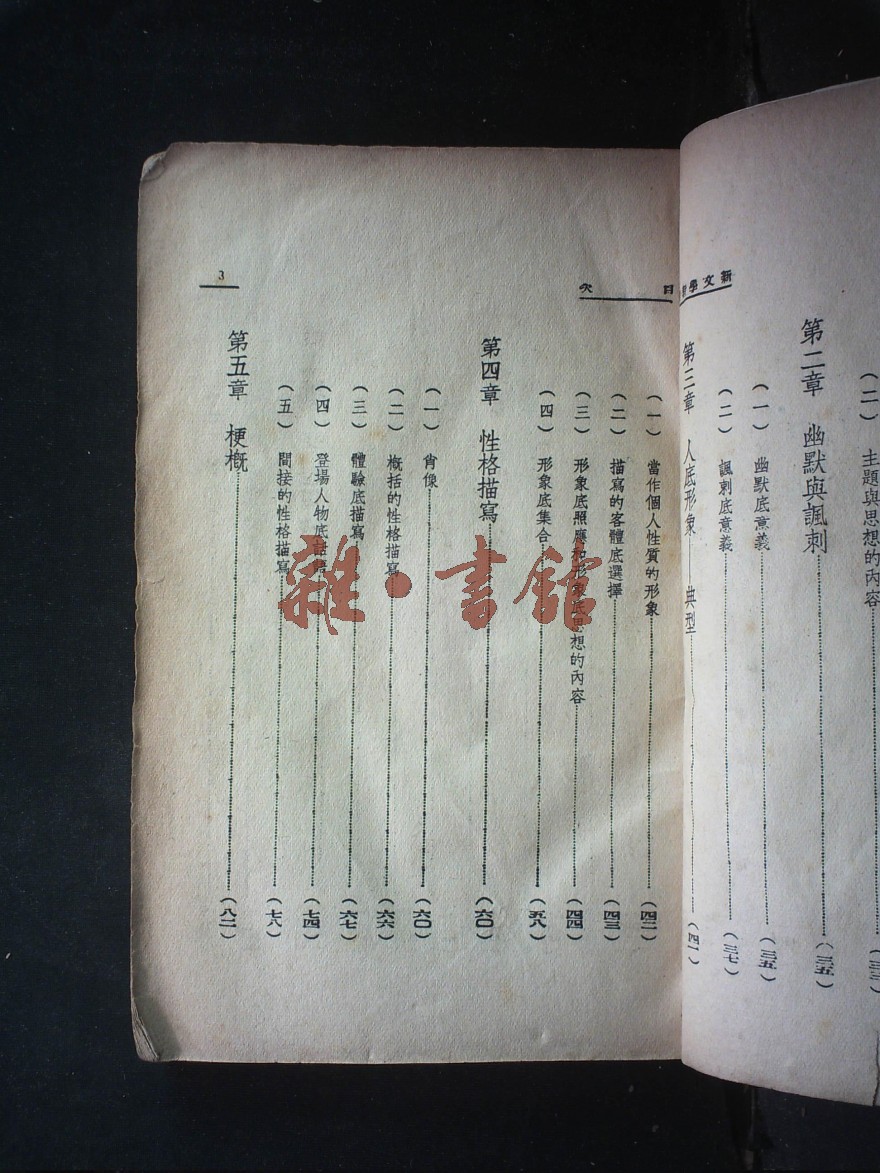 新文學
（二）主題與思想的內容
第二章　幽默與諷刺（三五）
（一）幽默底意義（三五）
（二）諷刺底意義（三七）
第三章　人底形象——典型（四一）
目次
（一）當作個人性質的形象（四二）
（二）描寫的客體底選擇（四三）
（三）形象底照應和形象底思想的內容（四四）
（四）形象底集合（五八）
第四章　性格描寫（六〇）
（一）肖像（六〇）
（二）概括的性格描寫（六六）
（三）體驗底描寫（六七）
（四）登場人物底話語（七四）
（五）間接的性格描寫（七八）
第五章　梗概（八一）
3
雜·書館